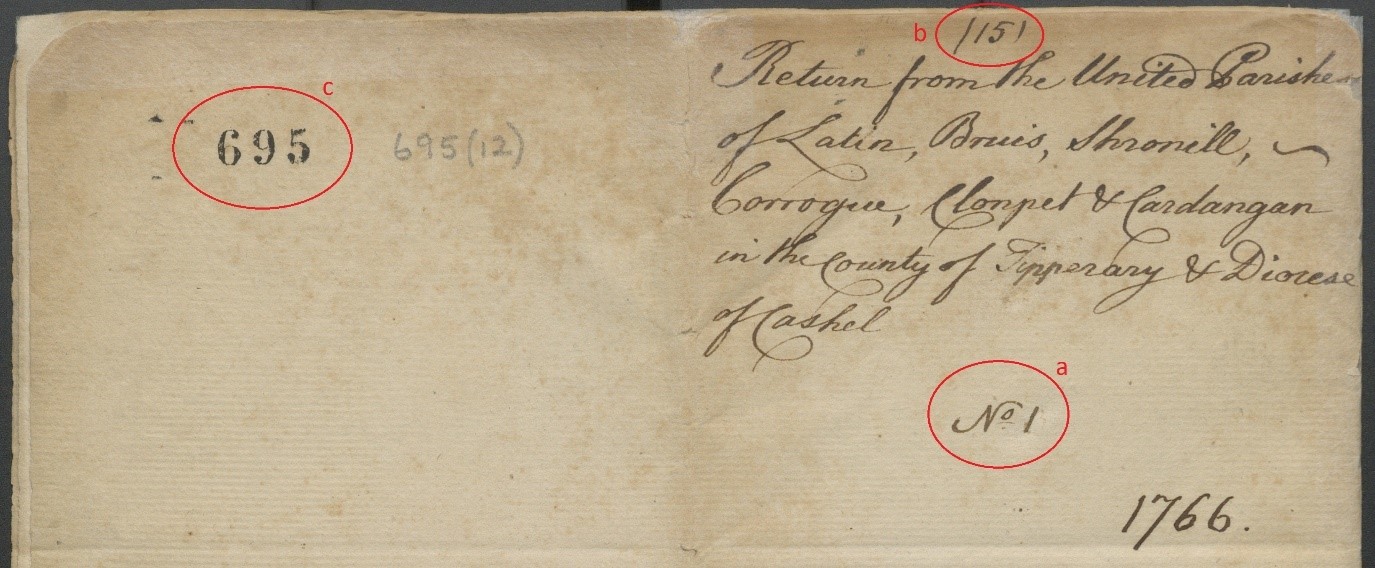 c
695
695(12)
b
(15)
Return from the United Parishes
of Latin, Bruis, Shronill,
Corrogue, Clonpet & Cardangan
in the County of Tipperary & Diocese
of Cashel
a
No 1
1766.